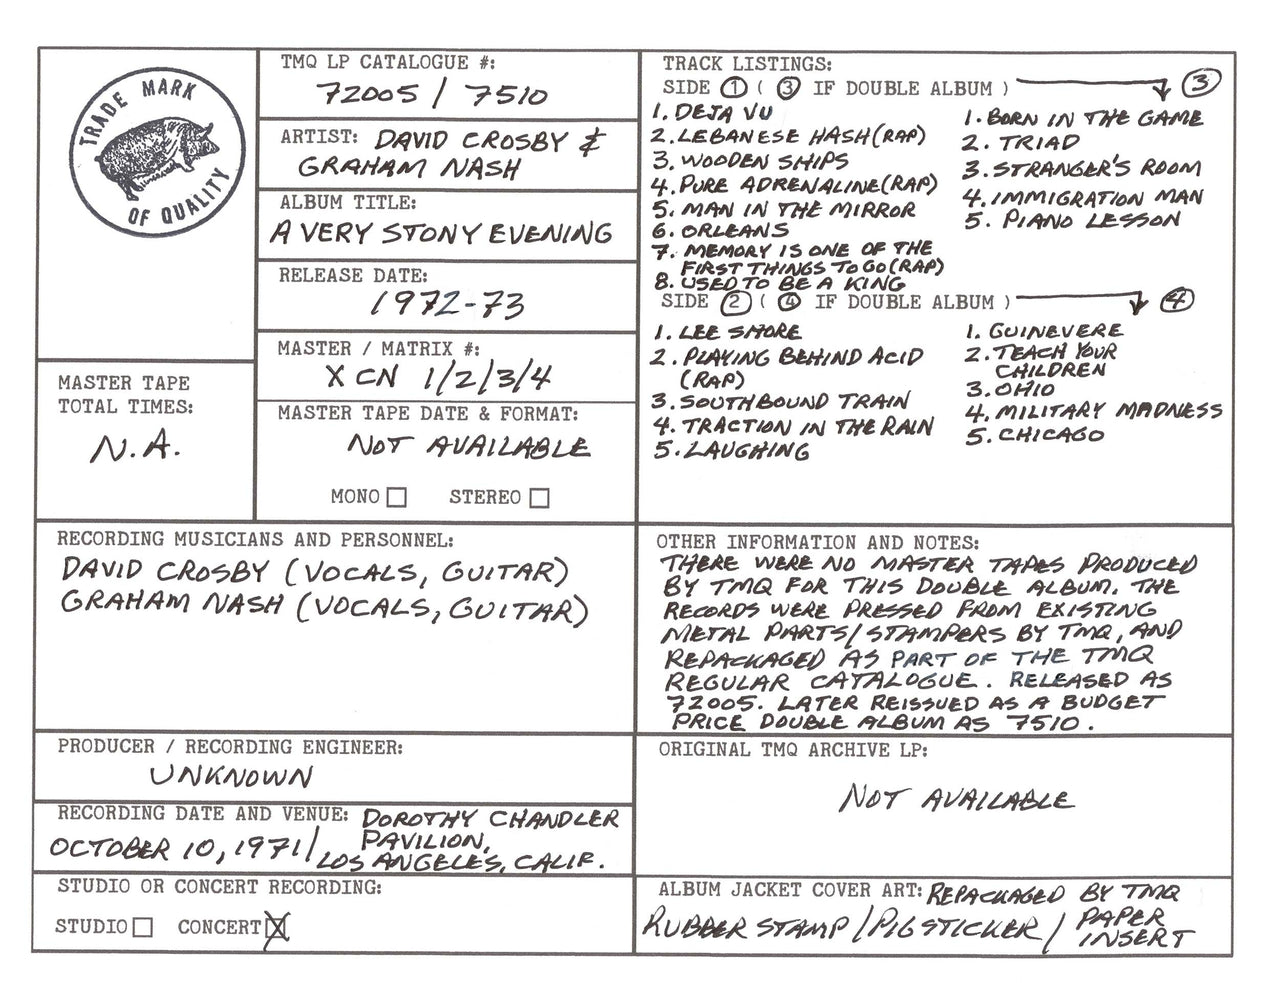 TRADE MARK
OF QUALITY
TMQ LP CATALOGUE #:
72005 / 7510
ARTIST: DAVID CROSBY &
GRAHAM NASH
ALBUM TITLE:
A VERY STONY EVENING
RELEASE DATE:
1972-73
MASTER / MATRIX #:
X CN 1/2/3/4
MASTER TAPE
TOTAL TIMES:
N.A.
MASTER TAPE DATE & FORMAT:
NOT AVAILABLE
MONO STEREO
TRACK LISTINGS:
SIDE 1 ( 3 IF DOUBLE ALBUM ) 3
1. DEJA VU
2. LEBANESE HASH (RAP)
3. WOODEN SHIPS
4. PURE ADRENALINE (RAP)
5. MAN IN THE MIRROR
6. ORLEANS
7. MEMORY IS ONE OF THE
FIRST THINGS TO GO (RAP)
8. USED TO BE A KING
1. BORN IN THE GAME
2. TRIAD
3. STRANGER'S ROOM
4. IMMIGRATION MAN
5. PIANO LESSON
SIDE 2 ( 4 IF DOUBLE ALBUM ) 4
1. LEE SHORE
2. PLAYING BEHIND ACID
(RAP)
3. SOUTHBOUND TRAIN
4. TRACTION IN THE RAIN
5. LAUGHING
1. GUINEVERE
2. TEACH YOUR
CHILDREN
3. OHIO
4. MILITARY MADNESS
5. CHICAGO
RECORDING MUSICIANS AND PERSONNEL:
DAVID CROSBY (VOCALS, GUITAR)
GRAHAM NASH (VOCALS, GUITAR)
OTHER INFORMATION AND NOTES:
THERE WERE NO MASTER TAPES PRODUCED
BY TMQ FOR THIS DOUBLE ALBUM. THE
RECORDS WERE PRESSED FROM EXISTING
METAL PARTS/STAMPERS BY TMQ, AND
REPACKAGED AS PART OF THE TMQ
REGULAR CATALOGUE. RELEASED AS
72005. LATER REISSUED AS A BUDGET
PRICE DOUBLE ALBUM AS 7510.
PRODUCER / RECORDING ENGINEER:
UNKNOWN
ORIGINAL TMQ ARCHIVE LP:
NOT AVAILABLE
RECORDING DATE AND VENUE: DOROTHY CHANDLER
OCTOBER 10, 1971/ PAVILION,
LOS ANGELES, CALIF.
STUDIO OR CONCERT RECORDING:
STUDIO CONCERT X
ALBUM JACKET COVER ART: REPACKAGED BY TMQ
RUBBER STAMP / PIG STICKER / PAPER
INSERT